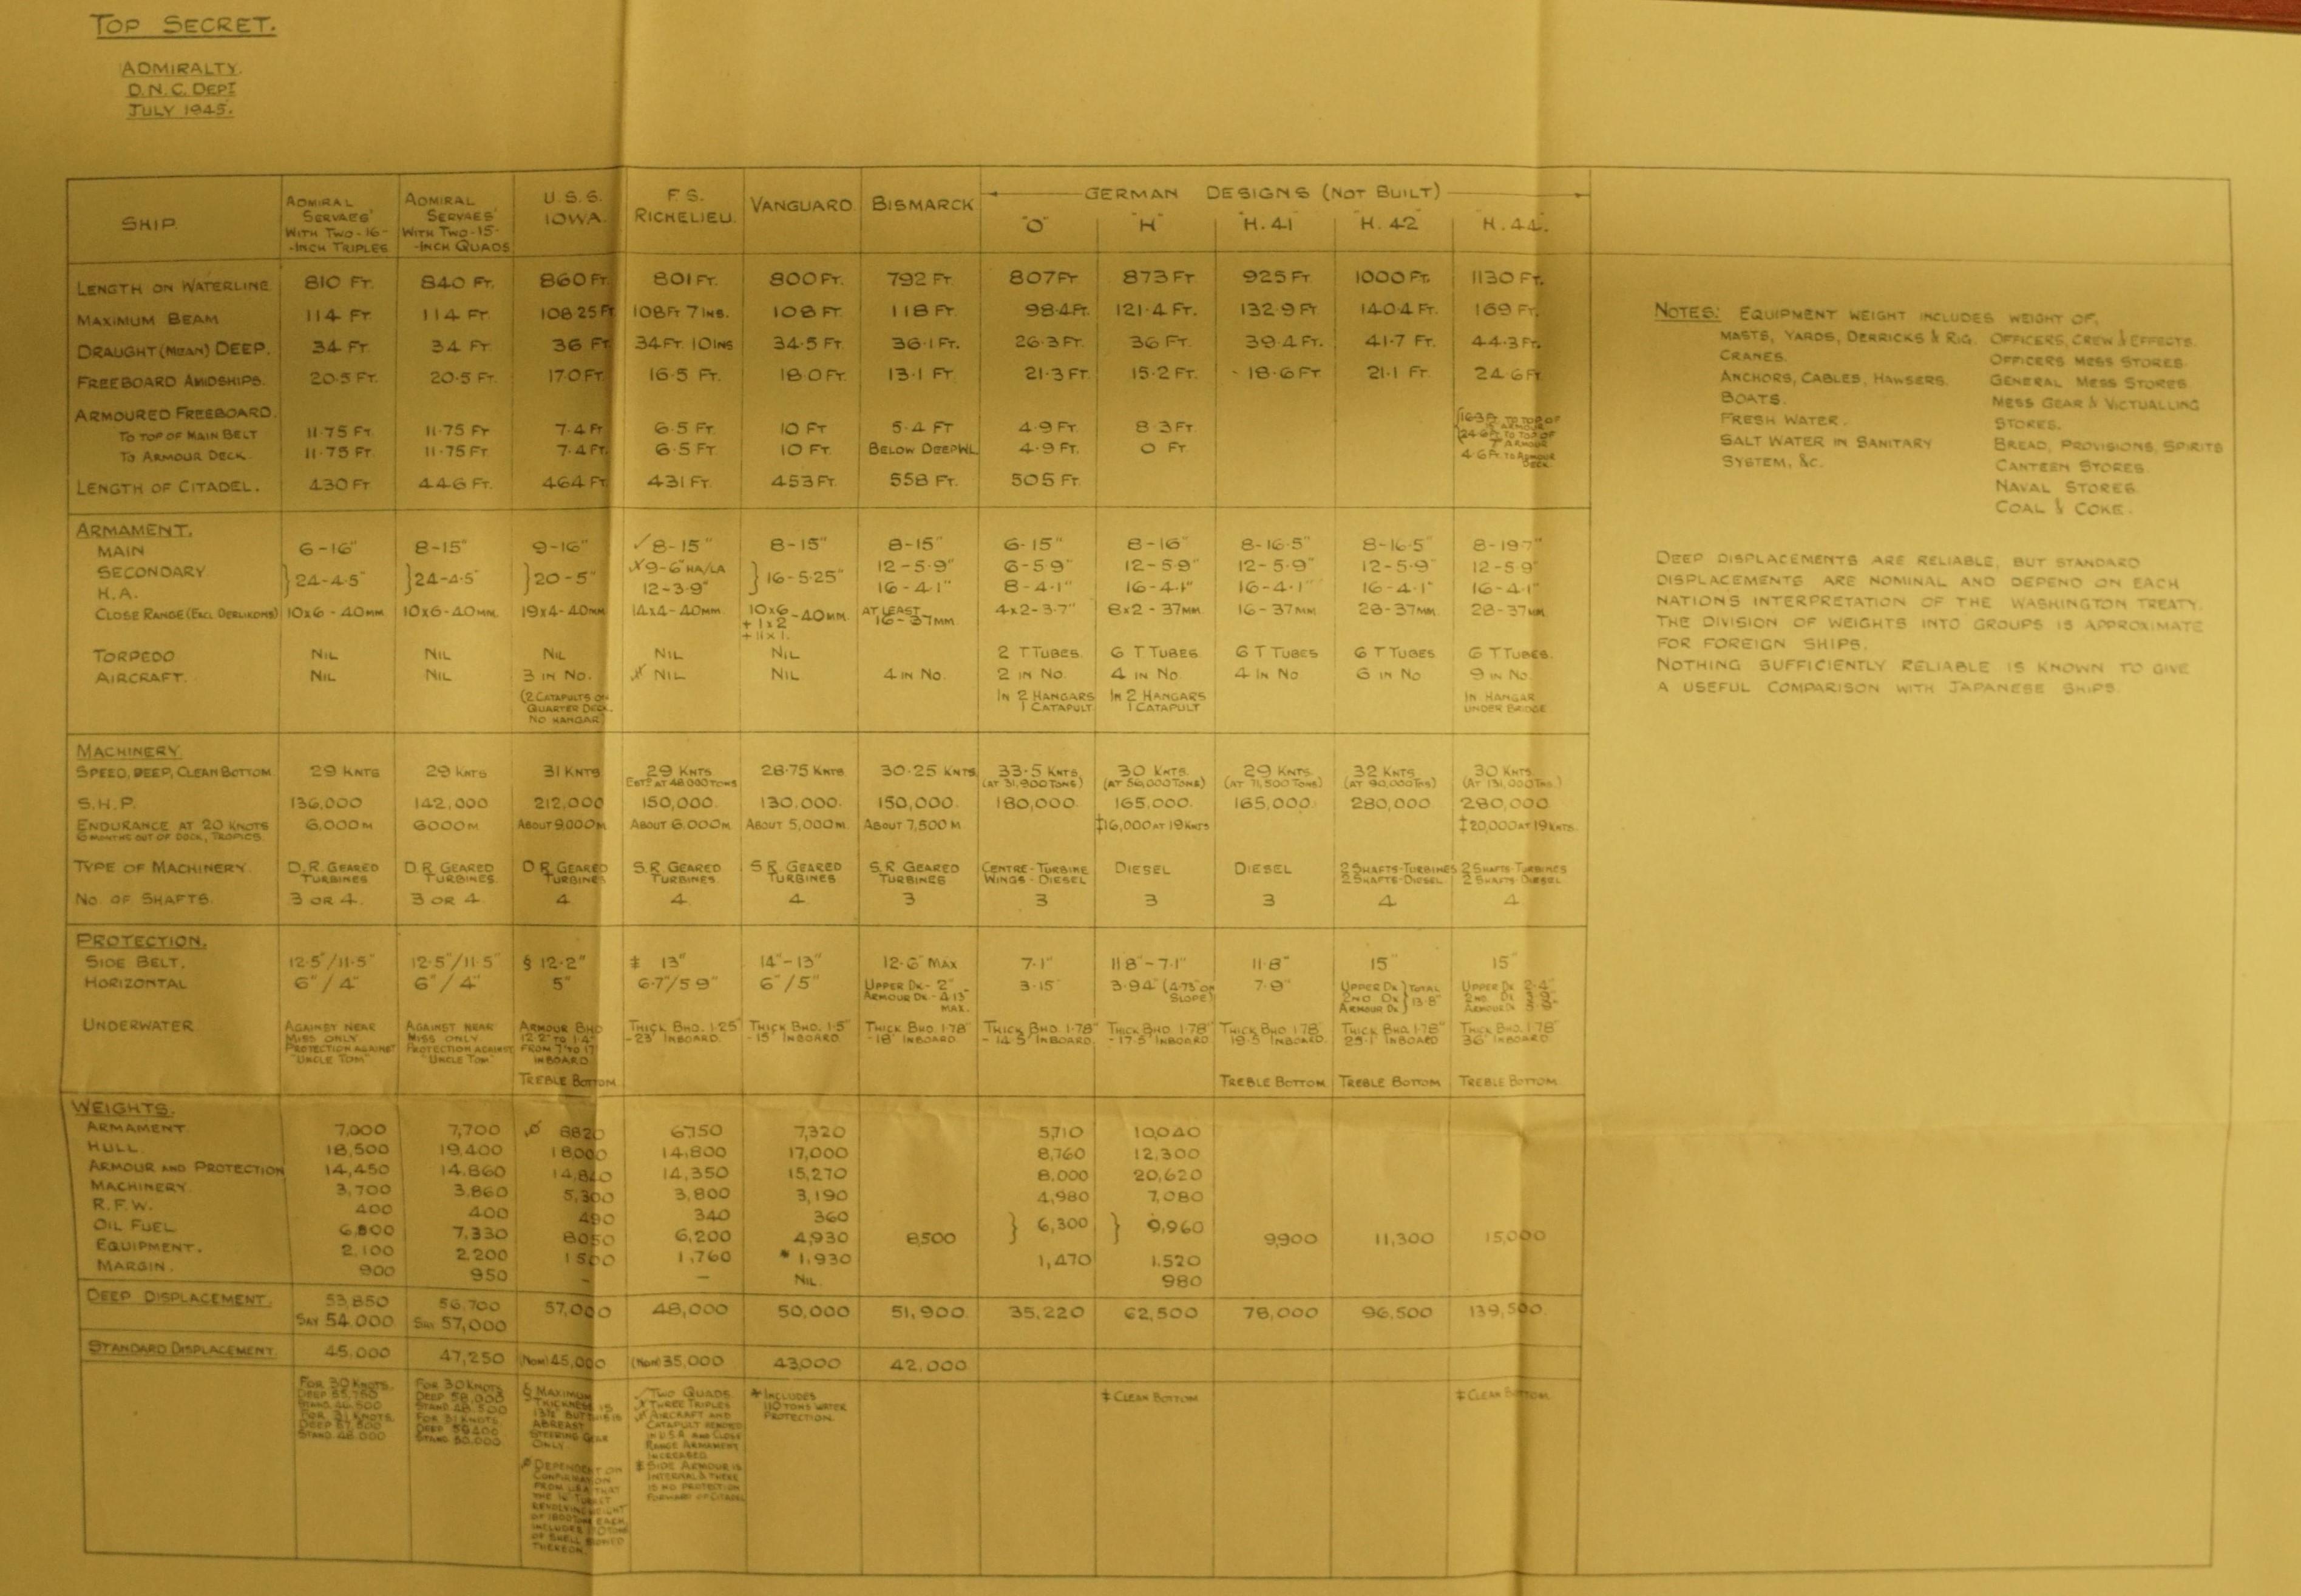 TOP SECRET.
ADMIRALTY.
D.N.C. DEPT
JULY 1945.
SHIP. ADMIRAL SERVAES' WITH TWO-16-INCH TRIPLES ADMIRAL SERVAES' WITH TWO-15-INCH QUADS U.S.S. IOWA. F.S. RICHELIEU. VANGUARD. BISMARCK GERMAN DESIGNS (NOT BUILT) "O" "H" "H.41 "H.42 "H.44.
LENGTH ON WATERLINE 810 FT. 840 FT. 860 FT. 801 FT. 800 FT. 792 FT. 807 FT 873 FT 925 FT 1000 FT. 1130 FT.
MAXIMUM BEAM 114 FT 114 FT 108.25 FT 108 FT 7 INS. 108 FT. 118 FT 98.4 FT. 121.4 FT. 132.9 FT 140.4 FT. 169 FT.
DRAUGHT (MEAN) DEEP. 34 FT. 34 FT. 36 FT 34 FT. 10 INS 34.5 FT. 36.1 FT. 26.3 FT. 36 FT. 39.4 FT. 41.7 FT. 44.3 FT.
FREEBOARD AMIDSHIPS. 20.5 FT. 20.5 FT. 17.0 FT. 16.5 FT. 18.0 FT. 13.1 FT. 21.3 FT. 15.2 FT. 18.6 FT 21.1 FT. 24.6 FT
ARMOURED FREEBOARD.
TO TOP OF MAIN BELT 11.75 FT. 11.75 FT 7.4 FT. 6.5 FT. 10 FT 5.4 FT 4.9 FT. 8.3 FT. 24.6 FT. TO TOP OF
TO ARMOUR DECK. 11.75 FT. 11.75 FT 7.4 FT. 6.5 FT 10 FT. BELOW DEEP WL 4.9 FT. 0 FT. 4.6 FT. TO ARMOUR DECK.
LENGTH OF CITADEL. 430 FT 446 FT. 464 FT 431 FT. 453 FT. 558 FT. 505 FT.
ARMAMENT.
MAIN 6-16" 8-15" 9-16" ✓8-15" 8-15" 8-15" 6-15" 8-16" 8-16.5" 8-16.5" 8-19.7"
SECONDARY }24-4.5" }24-4.5" }20-5" 9-6" HA/LA }16-5.25" 12-5.9" 6-5.9" 12-5.9" 12-5.9" 12-5.9" 12-5.9"
H.A. 12-3.9" 16-4.1" 8-4.1" 16-4.1" 16-4.1" 16-4.1" 16-4.1"
CLOSE RANGE (EXCL OERLIKONS) 10x6-40MM. 10x6-40MM. 19x4-40MM. 14x4-40MM. 10x6 + 1x2 + 11x1. -40MM. AT LEAST 16-37MM 4x2-3.7" 8x2-37MM. 16-37MM. 28-37MM. 28-37MM.
TORPEDO NIL NIL NIL NIL NIL 2 T TUBES. 6 T TUBES 6 T TUBES 6 T TUBES 6 T TUBES.
AIRCRAFT. NIL NIL 3 IN NO. NIL NIL 4 IN NO. 2 IN NO. 4 IN NO. 4 IN NO 6 IN NO 9 IN NO.
(2 CATAPULTS ON QUARTER DECK. NO HANGAR) IN 2 HANGARS 1 CATAPULT. IN 2 HANGARS 1 CATAPULT IN HANGAR UNDER BRIDGE
MACHINERY
SPEED, DEEP, CLEAN BOTTOM 29 KNTS 29 KNTS 31 KNTS 29 KNTS ESTD AT 48000 TONS 28.75 KNTS 30.25 KNTS 33.5 KNTS. (AT 31,900 TONS) 30 KNTS. (AT 56,000 TONS) 29 KNTS. (AT 71,500 TONS) 32 KNTS (AT 90,000 TNS) 30 KNTS. (AT 131,000 TNS.)
S.H.P. 136,000 142,000 212,000 150,000. 130,000. 150,000. 180,000 165,000. 165,000. 280,000 280,000
ENDURANCE AT 20 KNOTS 6,000 M 6000 M ABOUT 9,000 M. ABOUT 6,000 M. ABOUT 5,000 M. ABOUT 7,500 M ‡16,000 AT 19 KNTS ‡20,000 AT 19 KNTS.
6 MONTHS OUT OF DOCK, TROPICS.
TYPE OF MACHINERY D.R. GEARED TURBINES D.R GEARED TURBINES. D.R GEARED TURBINES S.R GEARED TURBINES. S.R GEARED TURBINES S.R GEARED TURBINES CENTRE-TURBINE WINGS-DIESEL DIESEL DIESEL 2 SHAFTS-TURBINES 2 SHAFTS-DIESEL 2 SHAFTS-TURBINES 2 SHAFTS-DIESEL
NO. OF SHAFTS. 3 OR 4. 3 OR 4. 4 4. 4. 3 3 3 3 4 4
PROTECTION.
SIDE BELT. 12.5"/11.5" 12.5"/11.5" § 12.2" ‡ 13" 14"-13" 12.6" MAX 7.1" 11.8"-7.1" 11.8" 15" 15"
HORIZONTAL 6"/4" 6"/4" 5" 6.7"/5.9" 6"/5" UPPER DK-2" ARMOUR DK-4.13" MAX. 3.15" 3.94" (4.73" ON SLOPE) 7.9" UPPER DK 2ND DK ARMOUR DK } TOTAL 13.8" UPPER DK 2ND DK ARMOUR DK
UNDERWATER AGAINST NEAR MISS ONLY PROTECTION AGAINST "UNCLE TOM" AGAINST NEAR MISS ONLY PROTECTION AGAINST "UNCLE TOM" ARMOUR BHD 12.2" TO 1.4" FROM 7' TO 17' INBOARD THICK BHD. 1.25" -23' INBOARD. THICK BHD. 1.5" -15' INBOARD. THICK BHD 1.78" -18' INBOARD. THICK BHD. 1.78" -14.5' INBOARD. THICK BHD. 1.78" -17.5' INBOARD THICK BHD 1.78" 19.5' INBOARD. THICK BHD. 1.78" 25.1' INBOARD THICK BHD. 1.78" 36' INBOARD.
TREBLE BOTTOM TREBLE BOTTOM TREBLE BOTTOM TREBLE BOTTOM.
WEIGHTS.
ARMAMENT 7,000 7,700 ø 8820 6750 7,320 5,710 10,040
HULL 18,500 19,400 18000 14,800 17,000 8,760 12,300
ARMOUR AND PROTECTION 14,450 14,860 14,840 14,350 15,270 8,000 20,620
MACHINERY. 3,700 3,860 5,300 3,800 3,190 4,980 7,080
R.F.W. 400 400 490 340 360
OIL FUEL 6,800 7,330 8050 6,200 4,930 8,500 } 6,300 } 9,960 9,900 11,300 15,000
EQUIPMENT. 2,100 2,200 1500 1,760 * 1,930 1,470 1,520
MARGIN. 900 950 - - NIL. 980
DEEP DISPLACEMENT. 53,850 SAY 54,000 56,700 SAY 57,000 57,000 48,000 50,000 51,900 35,220 62,500 78,000 96,500 139,500
STANDARD DISPLACEMENT. 45,000 47,250 (NOM) 45,000 (NOM) 35,000 43,000 42,000
FOR 30 KNOTS. DEEP 55,750 STAND. 46,500 FOR 31 KNOTS. DEEP 57,500 STAND. 48,000
FOR 30 KNOTS DEEP 58,000 STAND 48,500 FOR 31 KNOTS. DEEP 59,400 STAND 50,000
§ MAXIMUM THICKNESS IS 13½" BUT THIS IS ABREAST STEERING GEAR ONLY.
ø DEPENDENT ON CONFIRMATION FROM U.S.A THAT THE 16" TURRET REVOLVING WEIGHT OF 1800 TONS EACH INCLUDES OF SHELL STOWED THEREON.
✓TWO QUADS. THREE TRIPLES AIRCRAFT AND CATAPULT REMOVED IN U.S.A AND CLOSE RANGE ARMAMENT INCREASED
‡ SIDE ARMOUR IS INTERNAL & THERE IS NO PROTECTION FORWARD OF CITADEL
* INCLUDES 110 TONS WATER PROTECTION.
‡ CLEAN BOTTOM
‡ CLEAN BOTTOM.
NOTES: EQUIPMENT WEIGHT INCLUDES WEIGHT OF,
MASTS, YARDS, DERRICKS & RIG. OFFICERS, CREW & EFFECTS.
CRANES. OFFICERS MESS STORES
ANCHORS, CABLES, HAWSERS. GENERAL MESS STORES
BOATS. MESS GEAR & VICTUALLING
FRESH WATER. STORES.
SALT WATER IN SANITARY BREAD, PROVISIONS, SPIRITS
SYSTEM, &C. CANTEEN STORES.
NAVAL STORES.
COAL & COKE.
DEEP DISPLACEMENTS ARE RELIABLE, BUT STANDARD
DISPLACEMENTS ARE NOMINAL AND DEPEND ON EACH
NATIONS INTERPRETATION OF THE WASHINGTON TREATY.
THE DIVISION OF WEIGHTS INTO GROUPS IS APPROXIMATE
FOR FOREIGN SHIPS.
NOTHING SUFFICIENTLY RELIABLE IS KNOWN TO GIVE
A USEFUL COMPARISON WITH JAPANESE SHIPS.